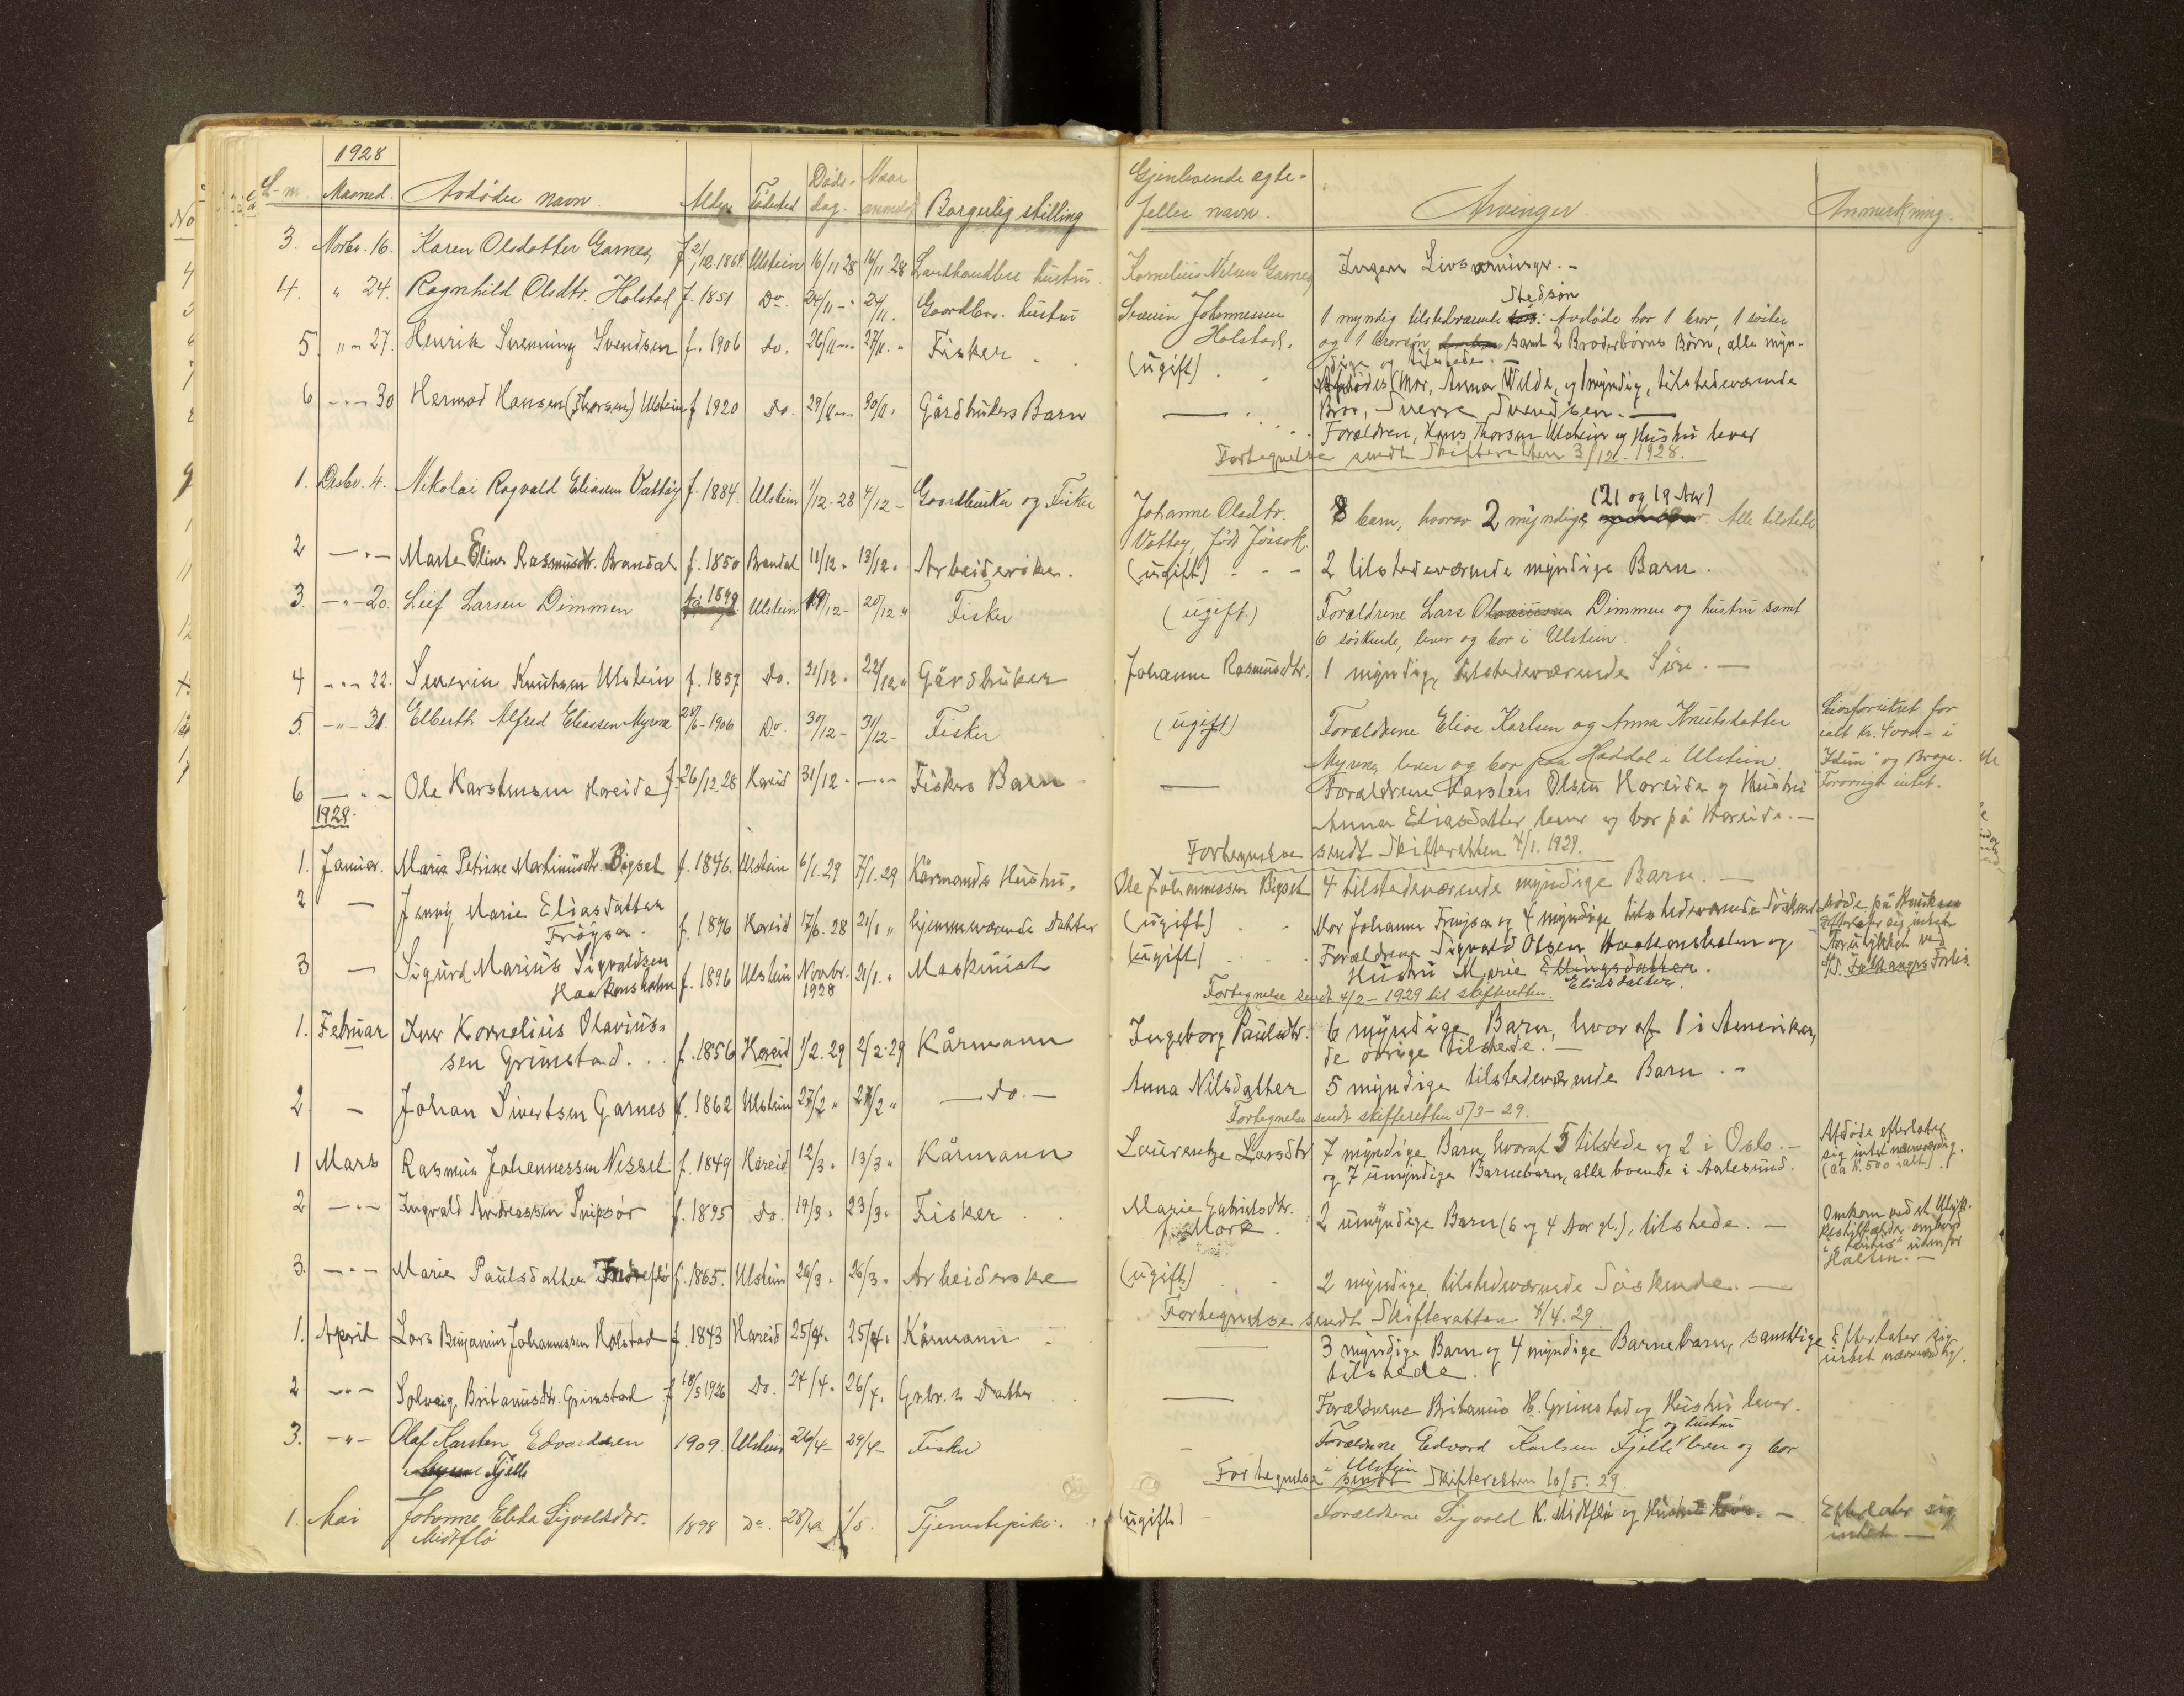 1928
L-nr. Maaned. Avdødes navn. Alder Fødested Døds-dag. Naar anmeldt Borgerlig stilling Gjenlevende egtefelles navn. Arvinger. Anmerkning.
3. Novbr. 16. Karen Olsdatter Garnes f 2/12 1864 Ulstein 16/11 28 16/11 28 Landhandlers hustru. Kornelius Nilsen Garnes Ingen Livsarvinger. -
4. " 24. Ragnhild Olsdtr. Holstad f. 1851 Do. 24/11 - " 24/11. Gaardbr. hustru Johannessen Holstad. 1 myndig tilstedeværende Stedsøn. Avdøde har 1 bror, 1 søster
og 1 brorsøn samt 2 Broderbørns Børn, alle myn-
dige og tilstede. -
5. " - 27. Henrik Svendsen f. 1906 do. 26/11 - 27/11. " Fisker (ugift) Afdødes Mor, Anna Vilde, og 1 myndig, tilstedeværende
Bror, Sverre Svendsen. -
6 - " - 30 Hermod Hansen (Thorsen) Ulstein f 1920 do. 29/11 - 30/11. Gårdbrukers Barn — Forældren, Hans Thorsen Ulstein og Hustru lever
Fortegnelse sendt Skifteretten 3/12 - 1928.
1. Desbr. 4. Nikolai Ragvald Eliassen Vattøy f. 1884. Ulstein 1/12 - 28 4/12 - Gaardbruker og Fisker Johanne Olsdtr. 8 barn, hvorav 2 myndige (21 og 19 Aar) Alle tilstede
Vattøy, født
2 - " - Marte Eline Rasmusdtr. Brandal f. 1850 Brandal 11/12 " 13/12 " Arbeiderske. (ugift) - - - 2 tilstedeværende myndige Barn.
3. - " - 20. Leif Larsen Dimmen f. 1899 Ulstein 19/12 - 20/12 " Fisker (ugift.) Forældrene Lars Dimmen og hustru samt
6 søskende, lever og bor i Ulstein.
4 - " - 22. Severin Knutsen Ulstein f. 1857 do. 21/12 " 22/12 " Gårdbruker Johanne Rasmusdtr. 1 myndig, tilstedeværende Søn. -
5. - " - 31. Elberth Alfred Eliassen Myrene 28/6 - 1906 Do 30/12 - 31/12 - Fisker (ugift) Forældrene Elias Karlsen og Anna Knutsdatter
Myrene, lever og bor paa Haddal i Ulstein. Livsforsikret for
ialt kr. 4000 - i
"Idun" og Brage.
Forøvrigt intet.
6 - " - Ole Karstensen Hareide f. 26/12 28 Hareid 31/12 - - " - Fiskers Barn — Forældrene Karsten Olsen Hareide og Hustru
Anna Eliasdatter lever og bor på Hareide. -
1929.
Fortegnelse sendt Skifteretten 4/1. 1929.
1. Januar. Maria Petrine Martinusdtr. Bigset f. 1846. Ulstein 6/1. 29 7/1. 29 Kårmands Hustru. Ole Johannessen Bigset 4 tilstedeværende myndige Barn. -
2 — Jenny Marie Eliasdatter f. 1896 Hareid 17/6. 28 21/1 " hjemmeværende Datter (ugift) Mor Johanne og 4 myndige, tilstedeværende Søskend døde på
efterlater sig intet
3 — Sigurd Marius Sigvaldsen
Haakonsholm f. 1896 Ulstein Novbr. 1928 21/1. " Maskinist (ugift) Forældrene Sigvald Olsen Haakonsholm og
Hustru Marie Eliasdatter. Forulykket ved
Fortegnelse sendt 4/2 - 1929 til skifteretten.
1. Februar Iver Kornelius Olavius-
sen Grimstad. f. 1856 Hareid 1/2. 29 2/2. 29 Kårmann Ingeborg Paulsdtr. 6 myndige Barn, hvoraf 1 i Amerika,
de øvrige tilstede. -
2. - Johan Sivertsen Garnes f. 1862 Ulstein 27/2 " 27/2 " — do. — Anna Nilsdatter 5 myndige tilstedeværende Barn. -
Fortegnelse sendt skifteretten 5/3 - 29.
1 Mars Rasmus Johannessen Nesset f. 1849 Hareid 12/3 " 13/3 " Kårmann Laurentze Larsdtr 7 myndige Barn, hvoraf 5 tilstede og 2 i Oslo. -
og 7 umyndige Barnebarn, alle boende i Aalesund. Afdøde efterlater
sig intet nævneværdig.
(ca k. 500 ialt).
2 - " - Ingvald Andreassen Snipsør f. 1895 do. 19/3. 23/3. Fisker Marie Gabrielsdtr.
f. Mork. 2 umyndige Barn (6 og 4 Aar gl.), tilstede. - Omkom ved et Ulyk-
kestilfælde ombord
i utenfor
Halten. -
3. - " - Marie Paulsdatter f. 1865. Ulstein 26/3. 26/3. Arbeiderske (ugift) 2 myndige, tilstedeværende Søskende. -
Fortegnelse sendt Skifteretten 4/4. 29.
1. April Lars Benjamin Johannessen Holstad f. 1843 Hareid 25/4. 25/4. Kårmann — 3 myndige Barn og 4 myndige Barnebarn, samtlige
tilstede. Efterlater sig
intet nævneværdig.
2 - " - Solveig Britanusdtr. Grimstad f 18/5 1926 Do. 24/4. 26/4. Grbr. s Datter — Forældrene Britanus H. Grimstad og Hustru lever.
3. - " - Olaf Karsten Edvardsen
Fjelle 1909. Ulstein 26/4 - 29/4 - Fisker - Forældrene Edvard Karlsen Fjelle og hustru lever og bor
i Ulstein
Fortegnelse sendt Skifteretten 10/5. 29.
1. Mai Johanne Elida Sigvaldsdtr.
Midtflø 1898 Do. 28/4 1/5. Tjenestepike. (ugift) Forældrene Sigvald K. Midtflø og Hustru lever. - Efterlater sig
intet -